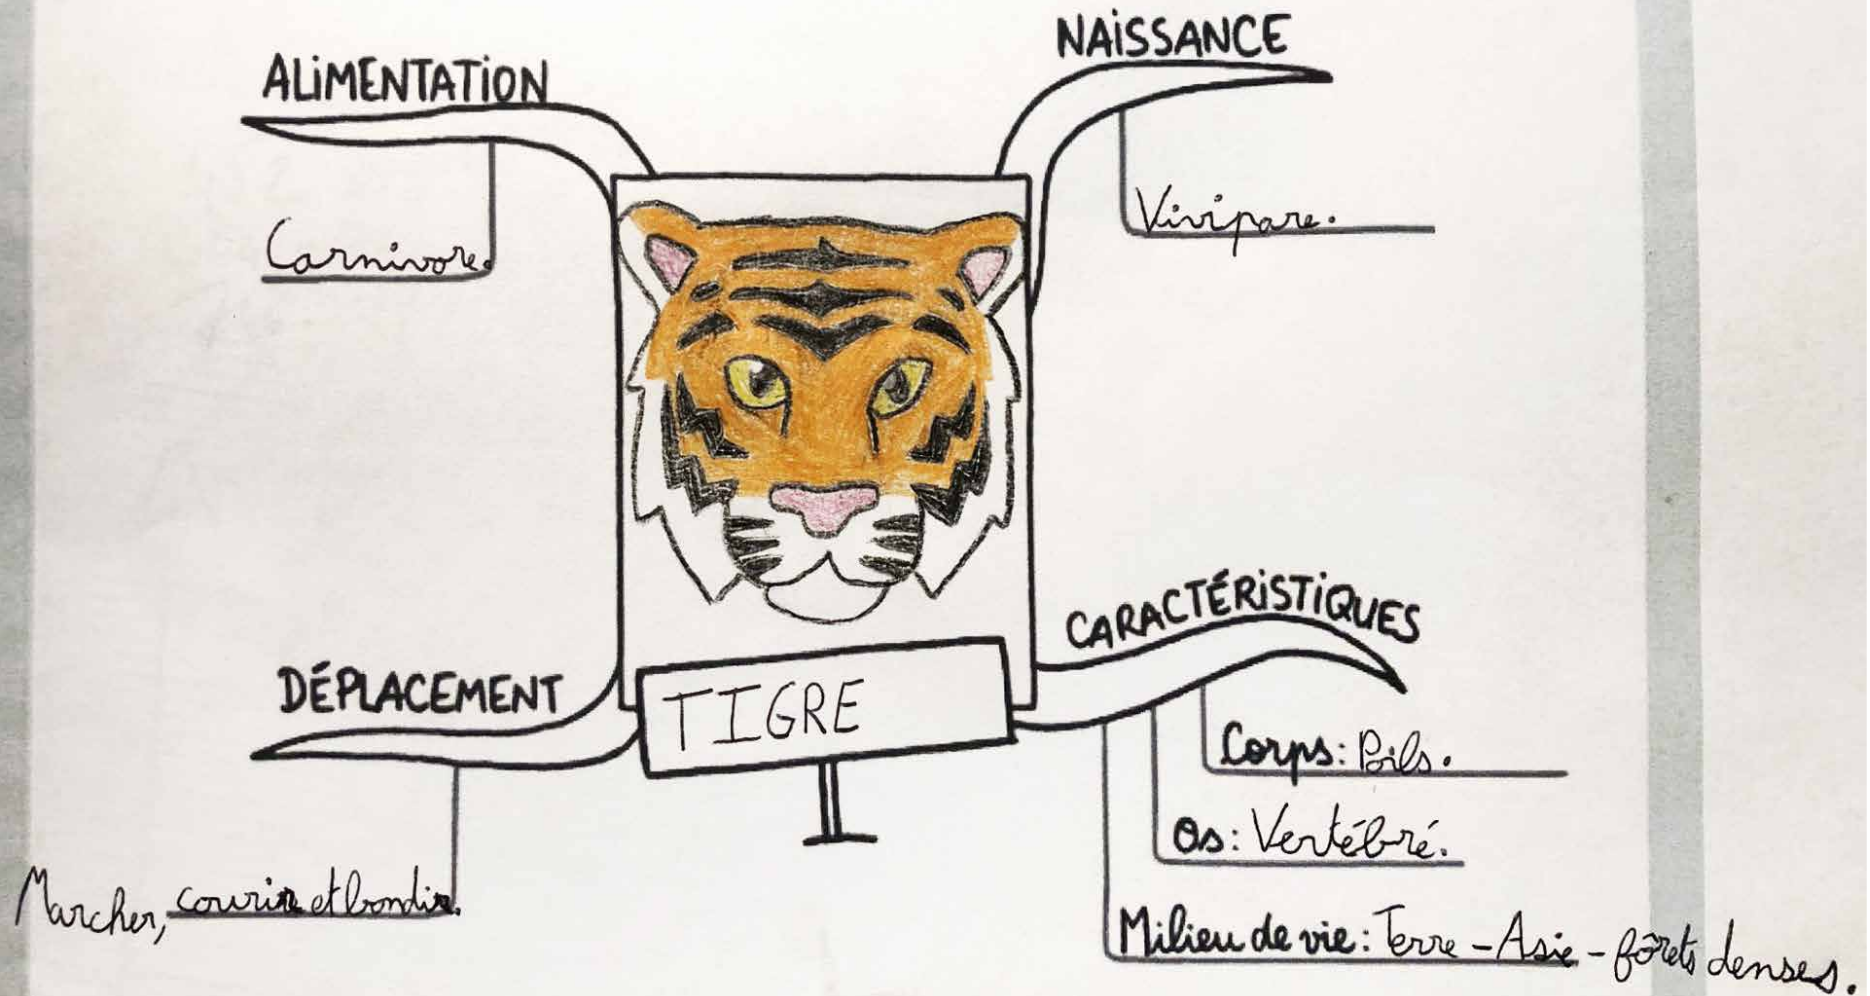 ALiMENTATiON
Carnivore.
NAiSSANCE
Vivipare.
DÉPLACEMENT
Marcher, courir et bondir.
TIGRE
CARACTÉRiSTiQUES
Corps: Poils.
Os: Vertébré.
Milieu de vie: Terre - Asie - fôrets denses.